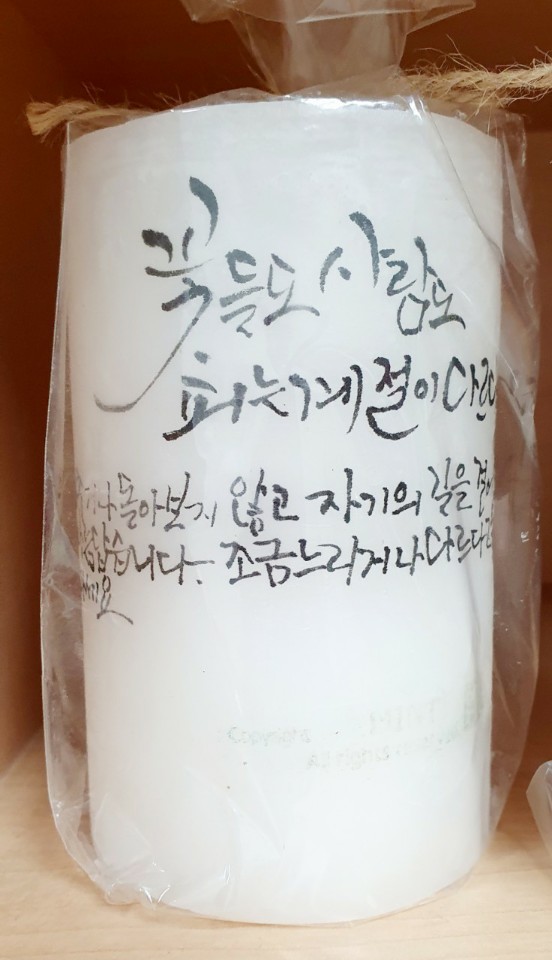 꽃들도 사람도
피는 계절이 다르다
돌아보지 않고 자기의 길을
습니다. 조금 느리거나 다르다고
요
Copyright
All rights